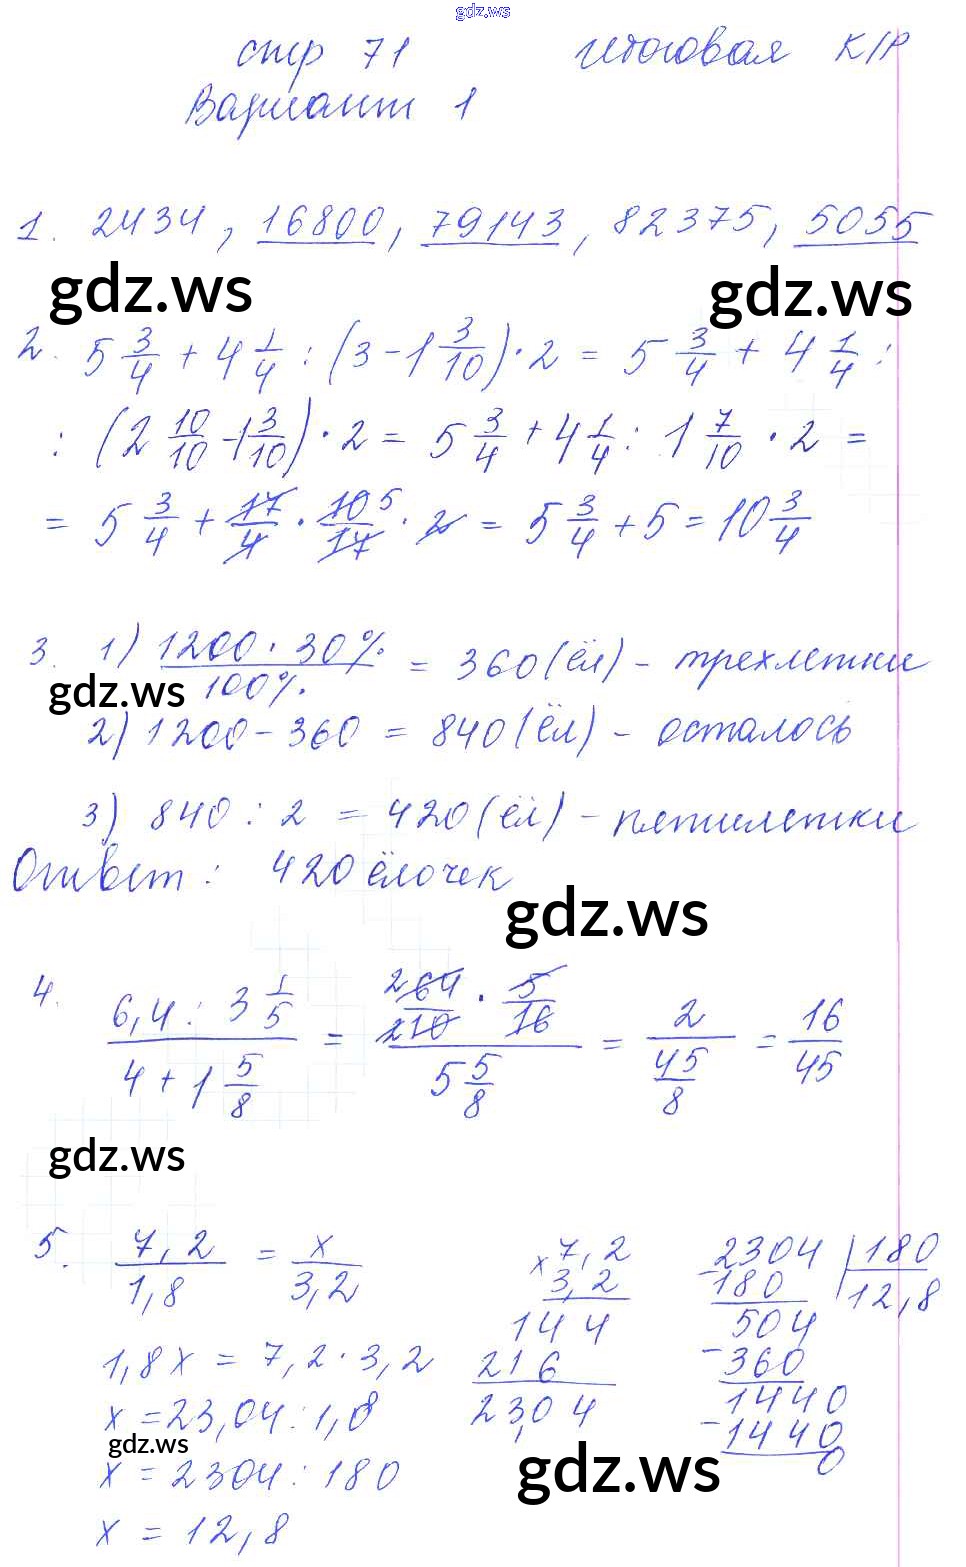 gdz.ws
стр 71 итоговая К/Р
Вариант 1
1. 2434, 16800, 79143, 82375, 5055
gdz.ws gdz.ws
2. 5 3/4 + 4 1/4 : (3 - 1 3/10) · 2 = 5 3/4 + 4 1/4 :
: (2 10/10 - 1 3/10) · 2 = 5 3/4 + 4 1/4 : 1 7/10 · 2 =
= 5 3/4 + 17/4 · 10/17 5 · 2 = 5 3/4 + 5 = 10 3/4
3. 1) 1200 · 30% / 100% = 360 (ёл) - трехлетки
gdz.ws
2) 1200 - 360 = 840 (ёл) - осталось
3) 840 : 2 = 420 (ёл) - пятилетки
Ответ : 420 ёлочек
gdz.ws
4. (6,4 : 3 1/5) / (4 + 1 5/8) = (2 64/210 · 5/16) / (5 5/8) = 2 / (45/8) = 16/45
gdz.ws
5. 7,2/1,8 = x/3,2
1,8x = 7,2 · 3,2
x = 23,04 : 1,8
gdz.ws
x = 2304 : 180
x = 12,8
× 7,2
3,2
144
216
23,04
2304 | 180
- 180 12,8
504
- 360
1440
- 1440
0
gdz.ws